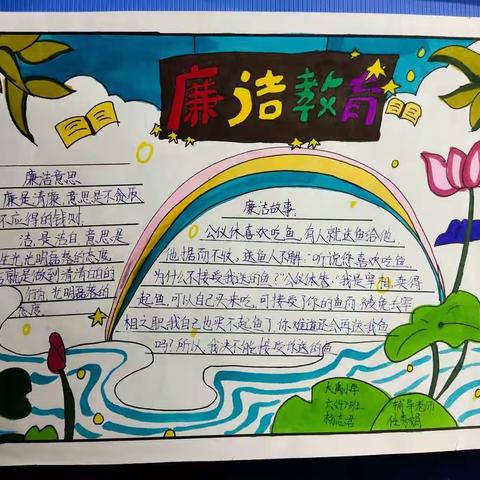 廉洁教育
廉洁意思
廉是清廉,意思是不贪取
不应得的钱财.
洁,是洁白,意思是
生光光明磊落的态度
就是做到清清白白的
行为,光明磊落的
态度
廉洁故事:
公仪休喜欢吃鱼,有人就送鱼给他,
他据而不收,送鱼人不解:"听说您喜欢吃鱼,
为什么不接受我送的鱼?"公仪休答:"我是宰相,买得
起鱼,可以自己买来吃,可接受了你的鱼而被免去宰
相之职,我自己也买不起鱼了,你难道还会再送我鱼
吗?所以,我决不能接受你送的鱼
大禹小学
六(4)班
杨志君
辅导老师
任秀娟